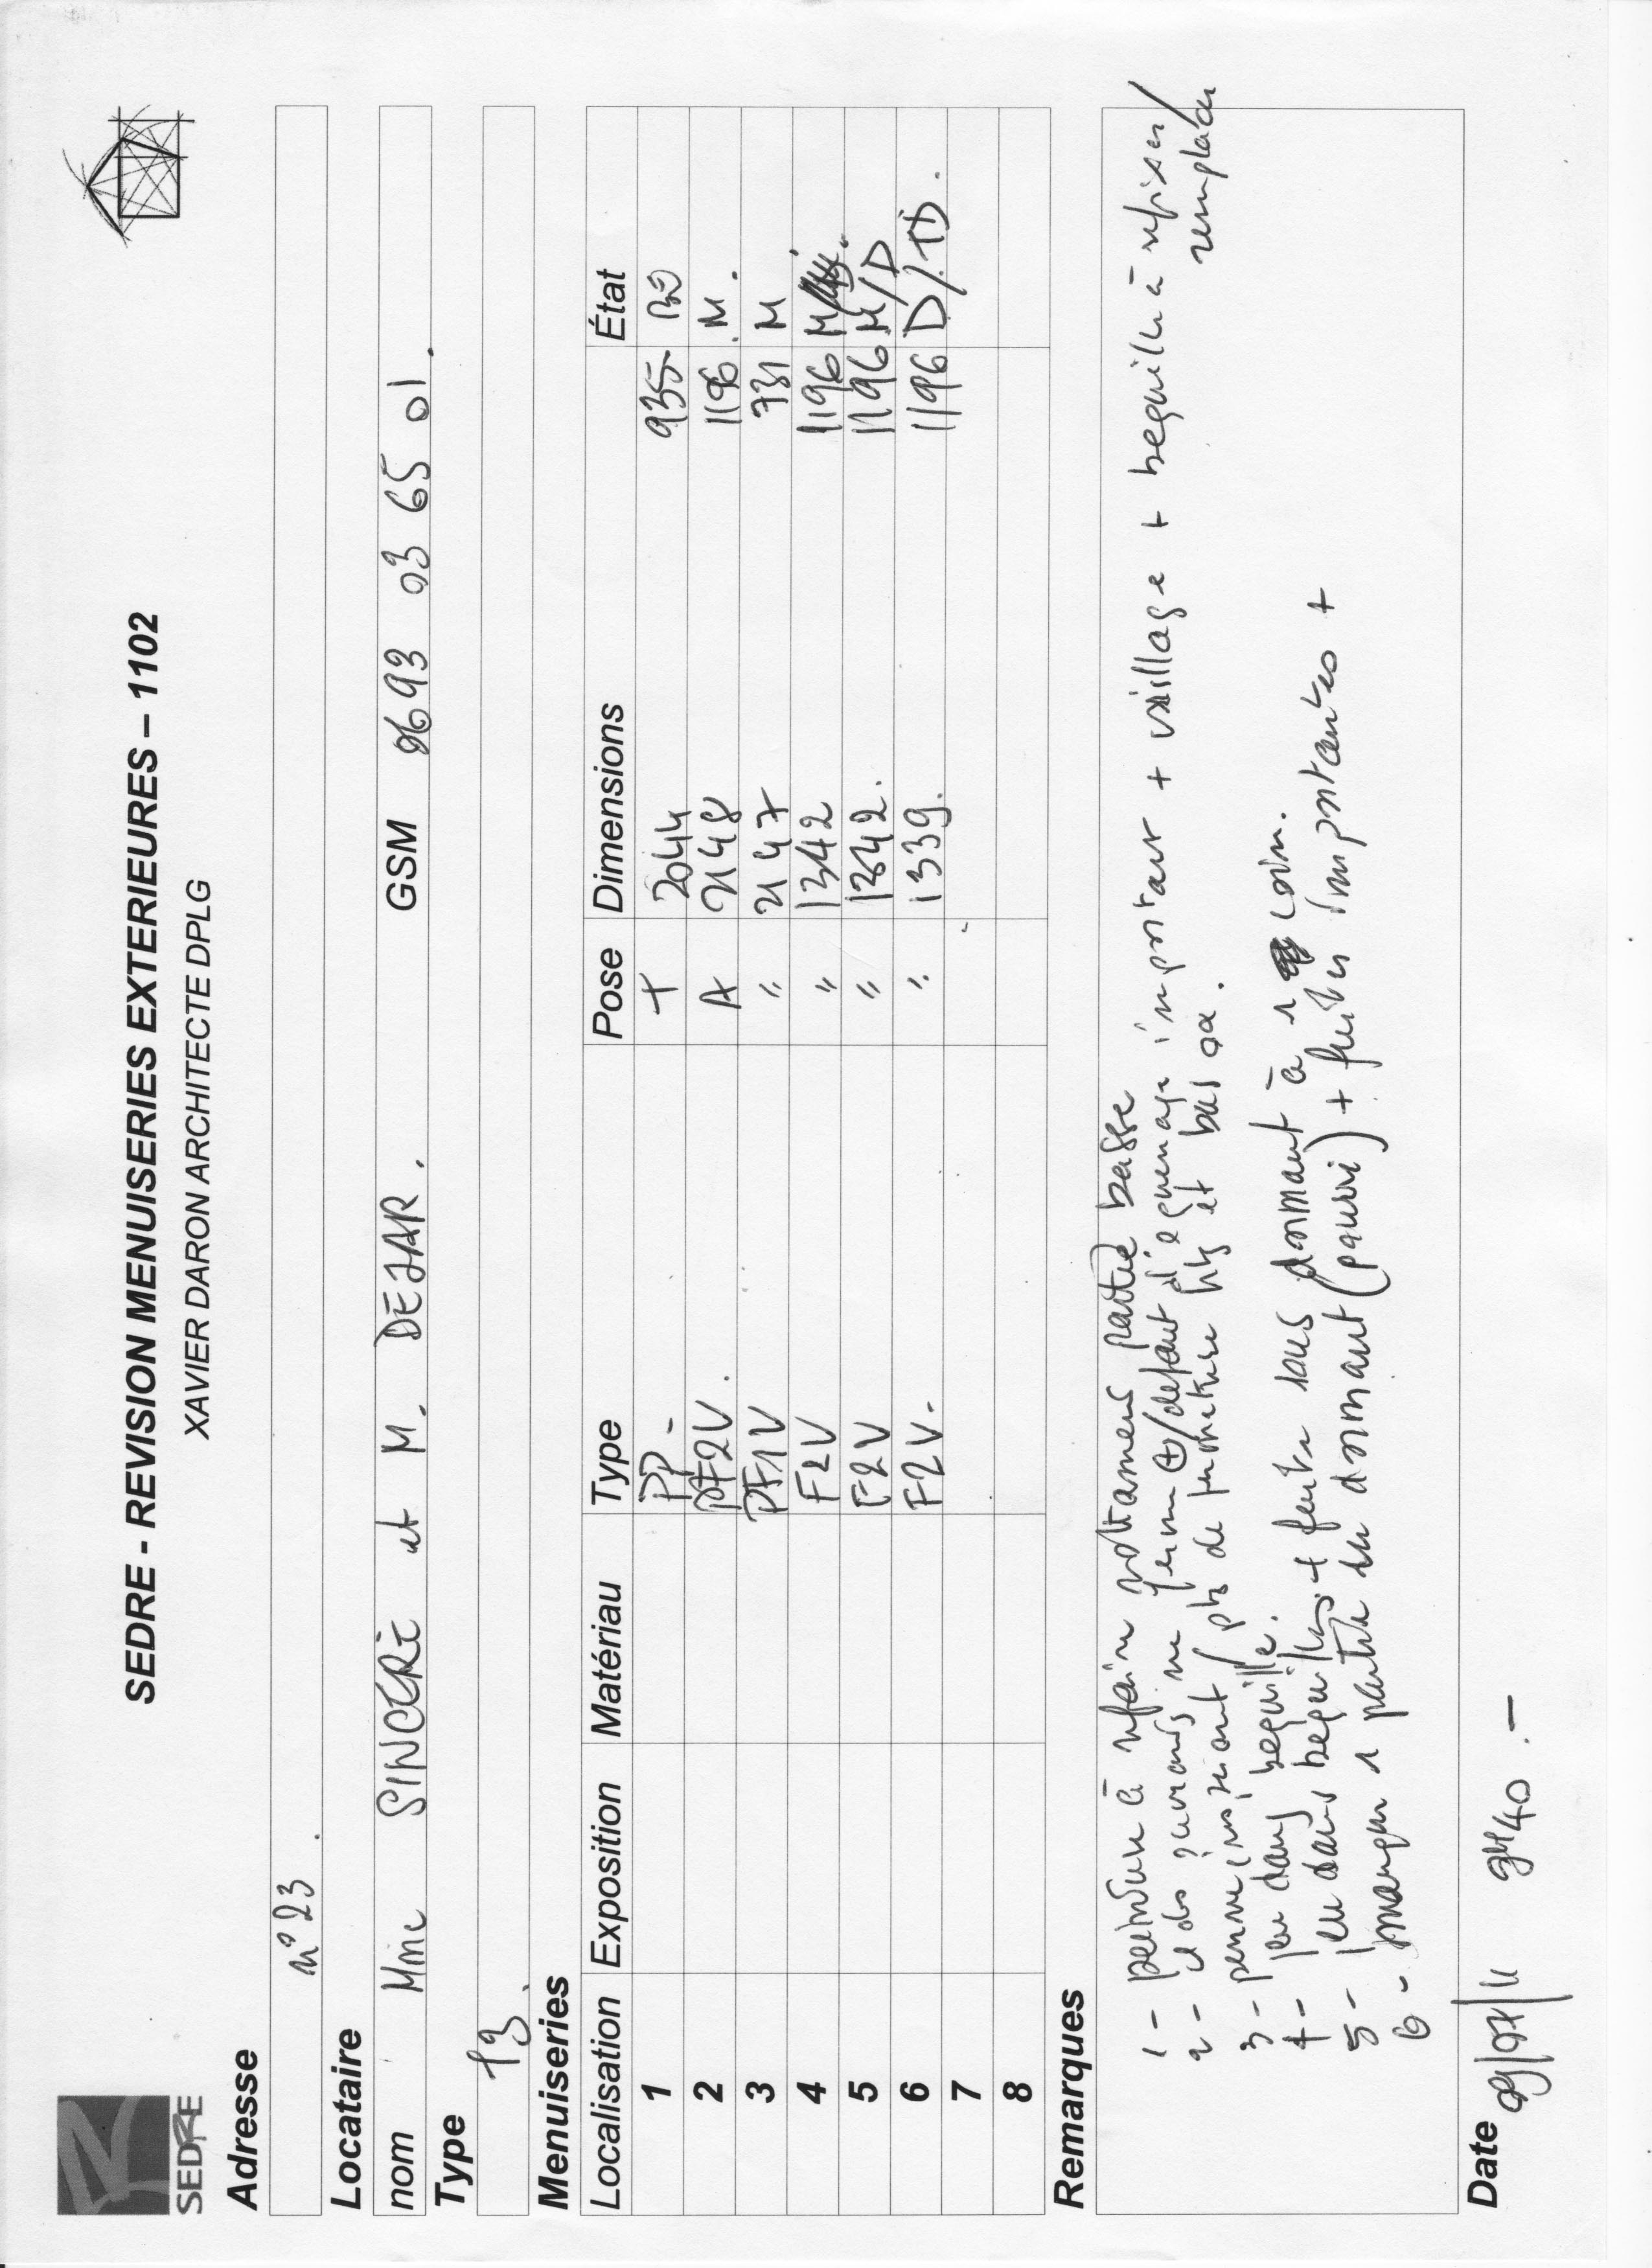 SEDRE - REVISION MENUISERIES EXTERIEURES – 1102
XAVIER DARON ARCHITECTE DPLG
SEDRE
Adresse
n° 23.
Locataire
nom Mme SINCERE et M. DEJAR. GSM 0693 03 65 01.
Type
T3.
Menuiseries
Localisation Exposition Matériau Type Pose Dimensions État
1 PP - T 2044 935
2 PF2V. A 2148 1196 M.
3 PF1V " 2147 731 M
4 F2V " 1342 1196 M
5 F2V " 1342. 1196 M/D
6 F2V- " 1339. 1196 D/TD.
7
8
Remarques
1 - peinture à refaire notamment partie basse
2 - ne ferme défaut d'équerrage important + vissage + bequille à refixer/
remplacer
penne pb de fermeture et bas
3 - jeu dans bequille.
4 - jeu dans bequille + fuite sous dormant à 1 coin.
5 -
6 - manque 1 partie du dormant (pourri) + fuites importantes +
Date 09/07/11 9H40.-